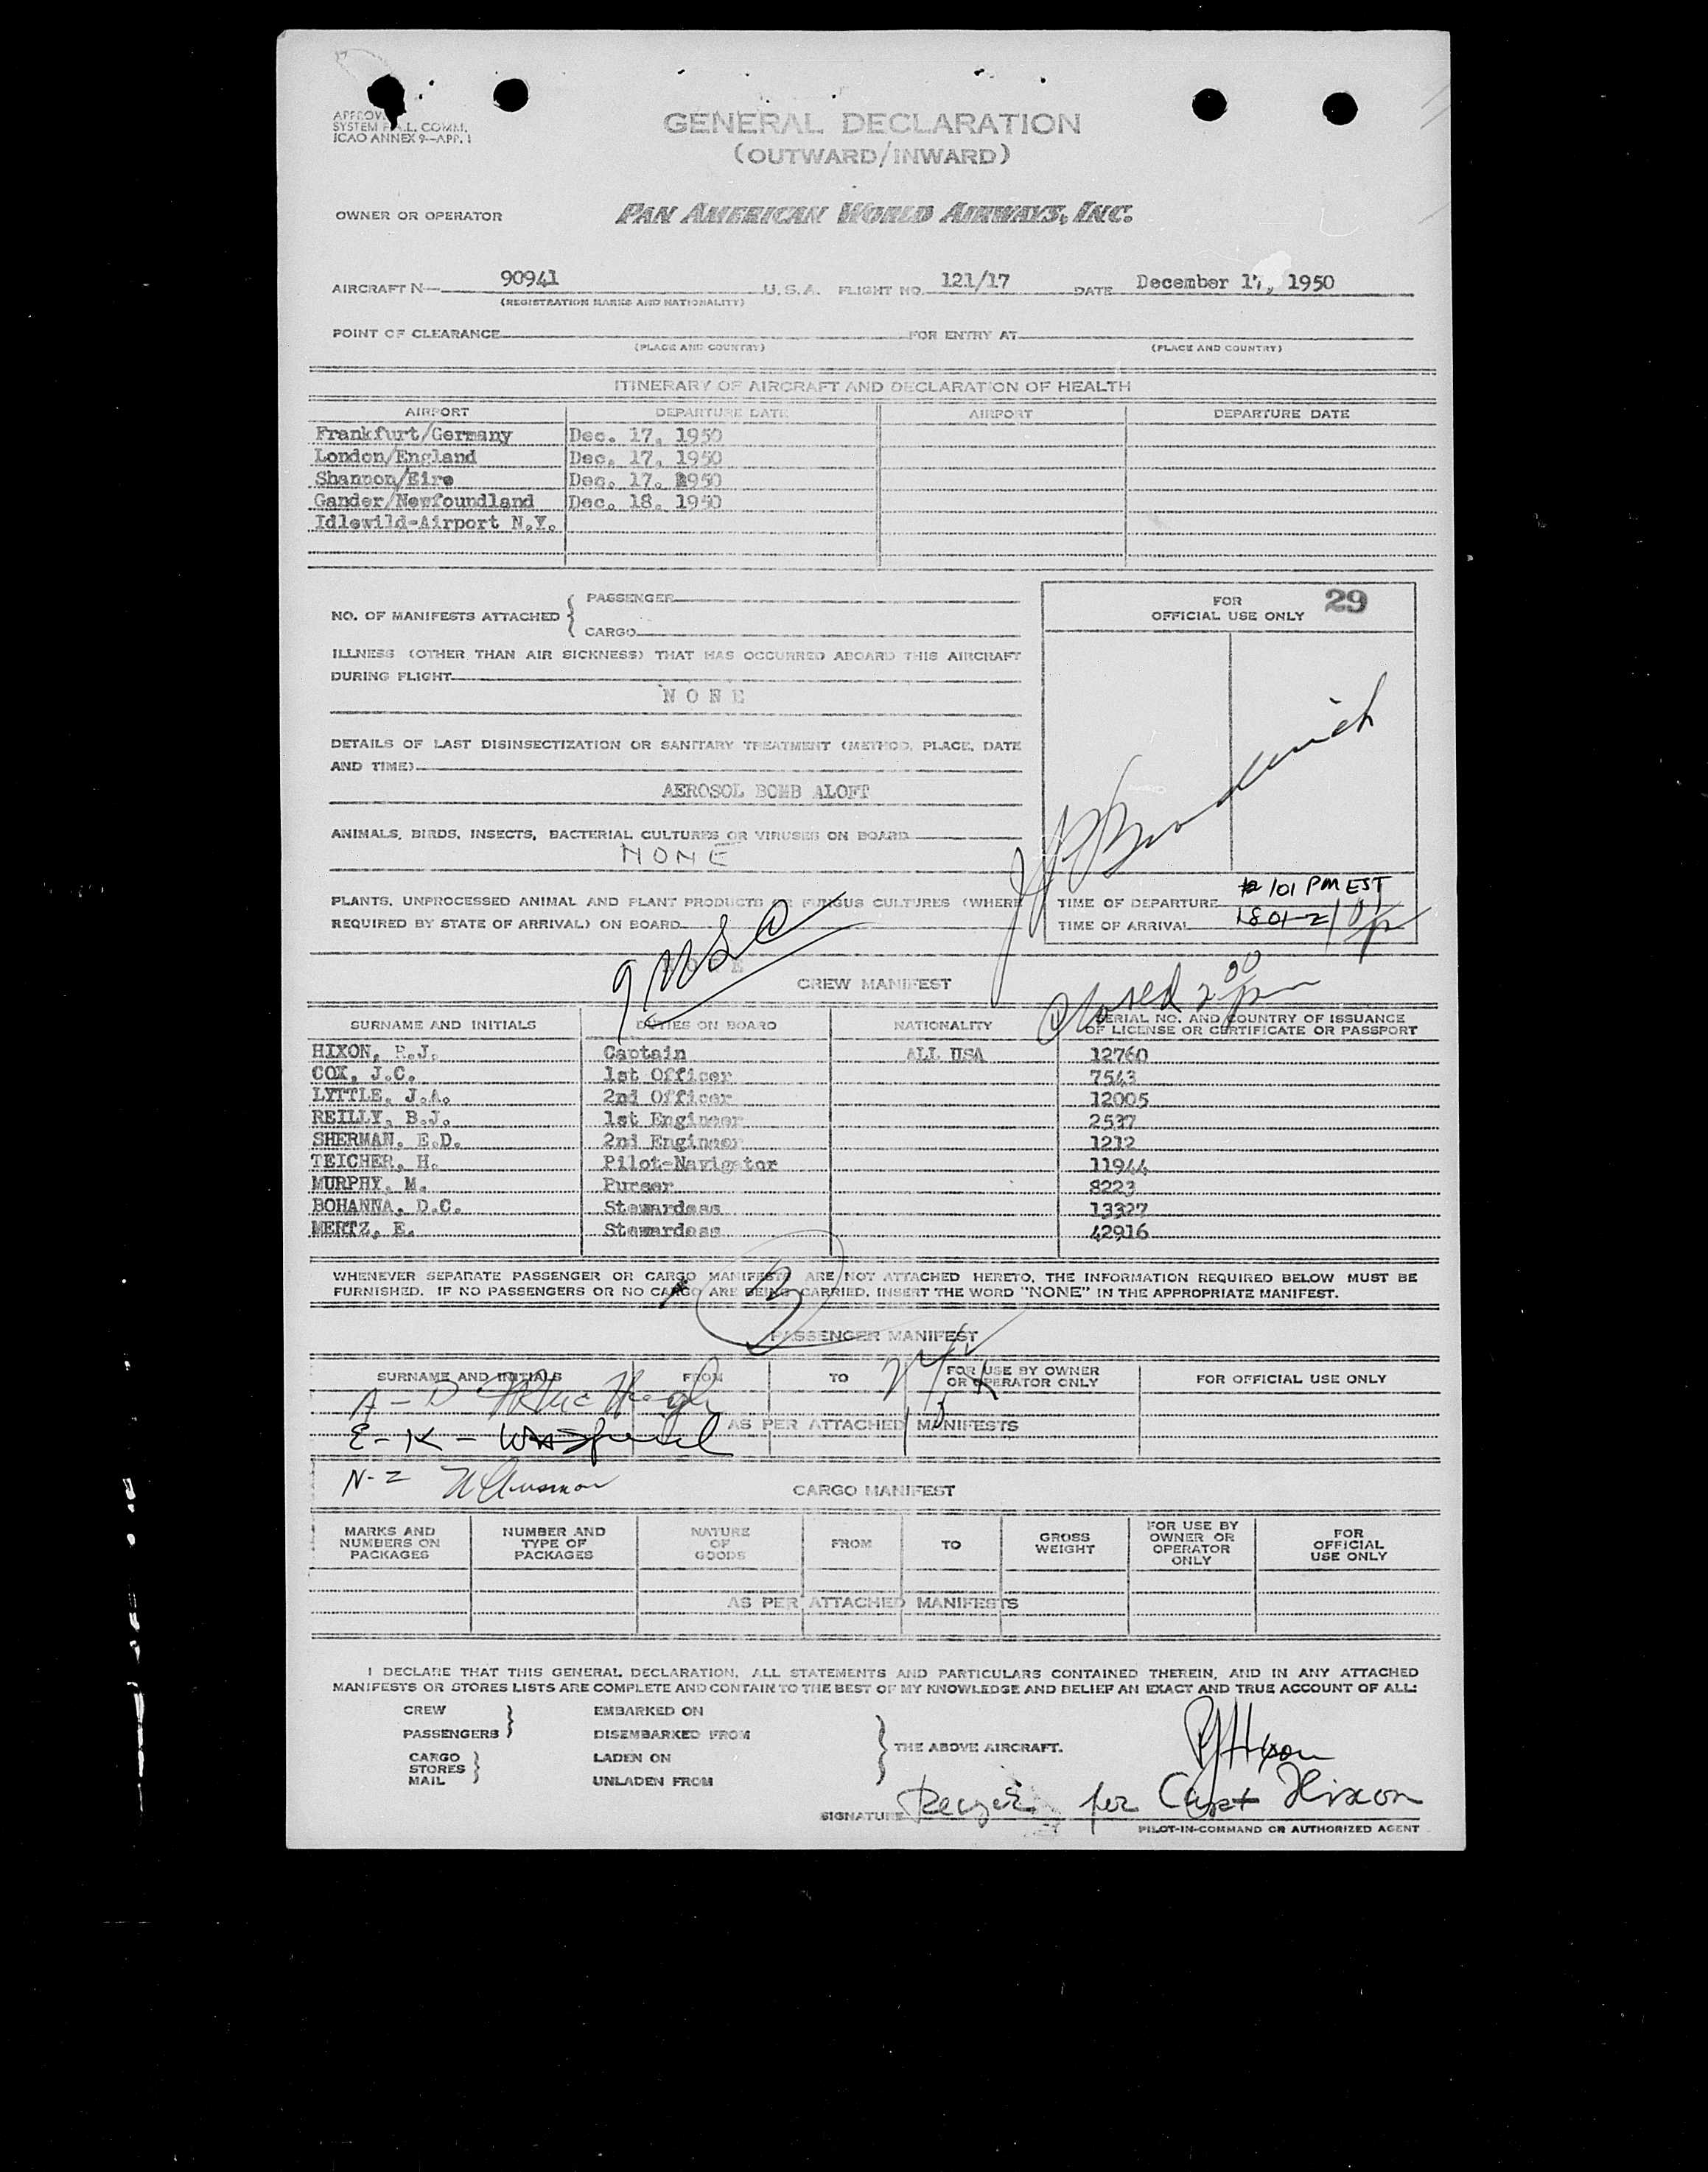 SYSTEM F.A.L. COMM.
ICAO ANNEX 9—APP. 1
GENERAL DECLARATION
(OUTWARD/INWARD)
OWNER OR OPERATOR PAN AMERICAN WORLD AIRWAYS, INC.
AIRCRAFT N— 90941 U.S.A. FLIGHT NO. 121/17 DATE December 17, 1950
(REGISTRATION MARKS AND NATIONALITY)
POINT OF CLEARANCE FOR ENTRY AT
(PLACE AND COUNTRY) (PLACE AND COUNTRY)
ITINERARY OF AIRCRAFT AND DECLARATION OF HEALTH
AIRPORT DEPARTURE DATE AIRPORT DEPARTURE DATE
Frankfurt/Germany Dec. 17, 1950
London/England Dec. 17, 1950
Shannon/Eire Dec. 17. 1950
Gander/Newfoundland Dec. 18. 1950
Idlewild-Airport N.Y.
NO. OF MANIFESTS ATTACHED { PASSENGER
CARGO
FOR
OFFICIAL USE ONLY 29
ILLNESS (OTHER THAN AIR SICKNESS) THAT HAS OCCURRED ABOARD THIS AIRCRAFT
DURING FLIGHT
NONE
DETAILS OF LAST DISINSECTIZATION OR SANITARY TREATMENT (METHOD, PLACE, DATE
AND TIME)
AEROSOL BOMB ALOFT
ANIMALS, BIRDS, INSECTS, BACTERIAL CULTURES OR VIRUSES ON BOARD
NONE
PLANTS, UNPROCESSED ANIMAL AND PLANT PRODUCTS OR FUNGUS CULTURES (WHERE
REQUIRED BY STATE OF ARRIVAL) ON BOARD
NONE
TIME OF DEPARTURE 101 PM EST
TIME OF ARRIVAL 1801-Z
Closed 2 00 pm
CREW MANIFEST
SURNAME AND INITIALS DUTIES ON BOARD NATIONALITY SERIAL NO. AND COUNTRY OF ISSUANCE
OF LICENSE OR CERTIFICATE OR PASSPORT
HIXON, R.J. Captain ALL USA 12760
COX, J.C. 1st Officer 7543
LYTTLE, J.A. 2nd Officer 12005
REILLY, B.J. 1st Engineer 2537
SHERMAN, E.D. 2nd Engineer 1212
TEICHER, H. Pilot-Navigator 11944
MURPHY, M. Purser 8223
BOHANNA, D.C. Stewardess 13327
MERTZ, E. Stewardess 42916
WHENEVER SEPARATE PASSENGER OR CARGO MANIFESTS ARE NOT ATTACHED HERETO, THE INFORMATION REQUIRED BELOW MUST BE
FURNISHED. IF NO PASSENGERS OR NO CARGO ARE BEING CARRIED, INSERT THE WORD "NONE" IN THE APPROPRIATE MANIFEST.
PASSENGER MANIFEST
SURNAME AND INITIALS FROM TO FOR USE BY OWNER
OR OPERATOR ONLY FOR OFFICIAL USE ONLY
A - D
AS PER ATTACHED MANIFESTS
E - K -
N-Z
CARGO MANIFEST
MARKS AND
NUMBERS ON
PACKAGES
NUMBER AND
TYPE OF
PACKAGES
NATURE
OF
GOODS
FROM
TO
GROSS
WEIGHT
FOR USE BY
OWNER OR
OPERATOR
ONLY
FOR
OFFICIAL
USE ONLY
AS PER ATTACHED MANIFESTS
I DECLARE THAT THIS GENERAL DECLARATION, ALL STATEMENTS AND PARTICULARS CONTAINED THEREIN, AND IN ANY ATTACHED
MANIFESTS OR STORES LISTS ARE COMPLETE AND CONTAIN TO THE BEST OF MY KNOWLEDGE AND BELIEF AN EXACT AND TRUE ACCOUNT OF ALL:
CREW EMBARKED ON
PASSENGERS } DISEMBARKED FROM
THE ABOVE AIRCRAFT.
CARGO LADEN ON
STORES }
MAIL UNLADEN FROM
RJ Hixon
SIGNATURE for Capt Hixon
PILOT-IN-COMMAND OR AUTHORIZED AGENT